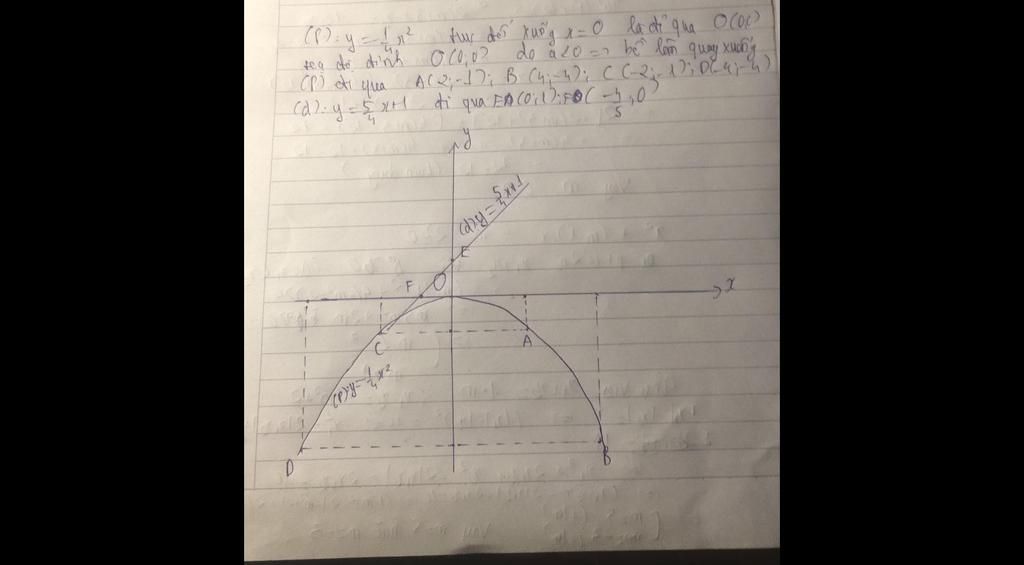 (P): y = -1/4 x² trục đối xứng x=0 là đi qua O(0;0)
toạ độ đỉnh O(0;0) do a<0 => bề lõm quay xuống
(P) đi qua A(2;-1); B(4;-4); C(-2;-1); D(-4;-4)
(d): y = 5/4 x+1 đi qua E(0;1); F(-4/5;0)
y
(d): y = 5/4 x+1
E
F O
x
C A
(P): y = -1/4 x²
D B